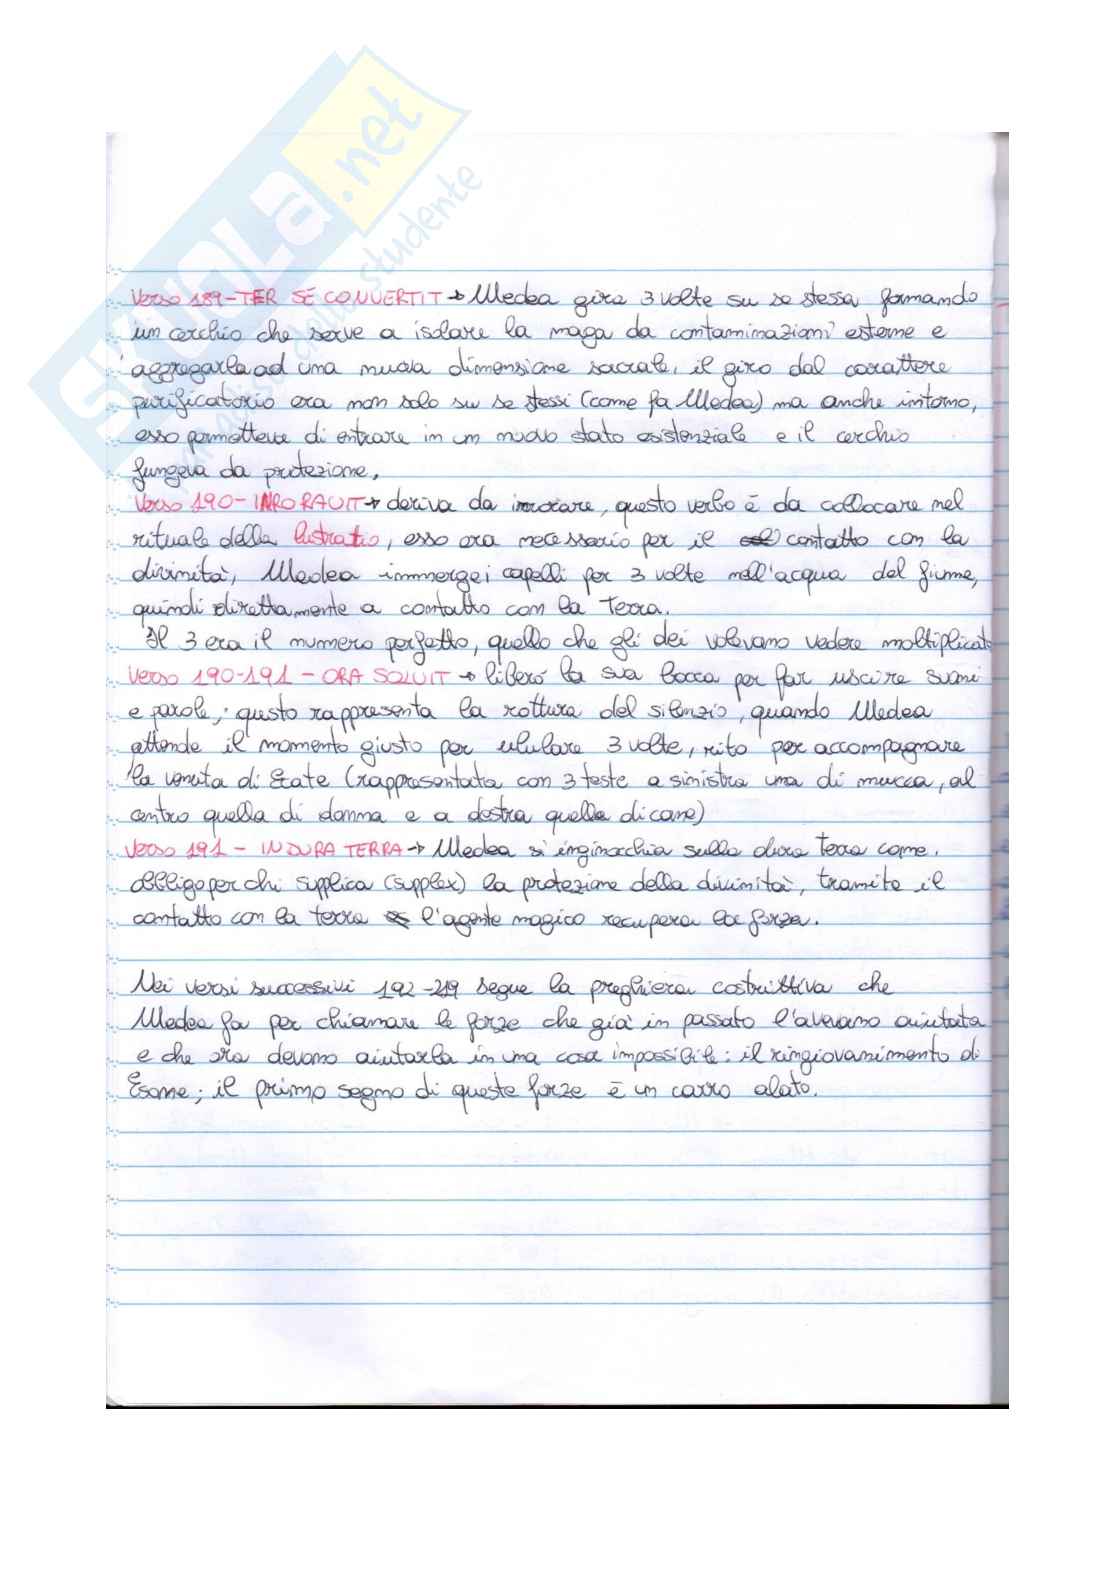 SKUOLA.net
paradiso dello studente
Verso 189-TER SE CONVERTIT → Medea gira 3 volte su se stessa formando
un cerchio che serve a isolare la maga da contaminazioni esterne e
aggregarla ad una nuova dimensione sacrale, il giro dal carattere
purificatorio era non solo su se stessi (come fa Medea) ma anche intorno,
esso permetteva di entrare in un nuovo stato esistenziale e il cerchio
fungeva da protezione,
Verso 190- INRORAVIT → deriva da irrorare, questo verbo è da collocare nel
rituale della lustratio, esso era necessario per il contatto con la
divinità, Medea immerge i capelli per 3 volte nell'acqua del fiume,
quindi direttamente a contatto con la Terra.
Il 3 era il numero perfetto, quello che gli dei volevano vedere moltiplicato
Verso 190-191 - ORA SOLVIT → liberò la sua bocca per far uscire suoni
e parole; questo rappresenta la rottura del silenzio, quando Medea
attende il momento giusto per ululare 3 volte, rito per accompagnare
la venuta di Ecate (rappresentata con 3 teste a sinistra una di mucca, al
centro quella di donna e a destra quella di cane)
Verso 191 - IN DURA TERRA → Medea si inginocchia sulla dura terra come
obbligo per chi supplica (supplex) la protezione della divinità, tramite il
contatto con la terra l'agente magico recupera la forza.
Nei versi successivi 192-219 segue la preghiera costruttiva che
Medea fa per chiamare le forze che già in passato l'avevano aiutata
e che ora devono aiutarla in una cosa impossibile: il ringiovanimento di
Esone; il primo segno di queste forze è un carro alato.